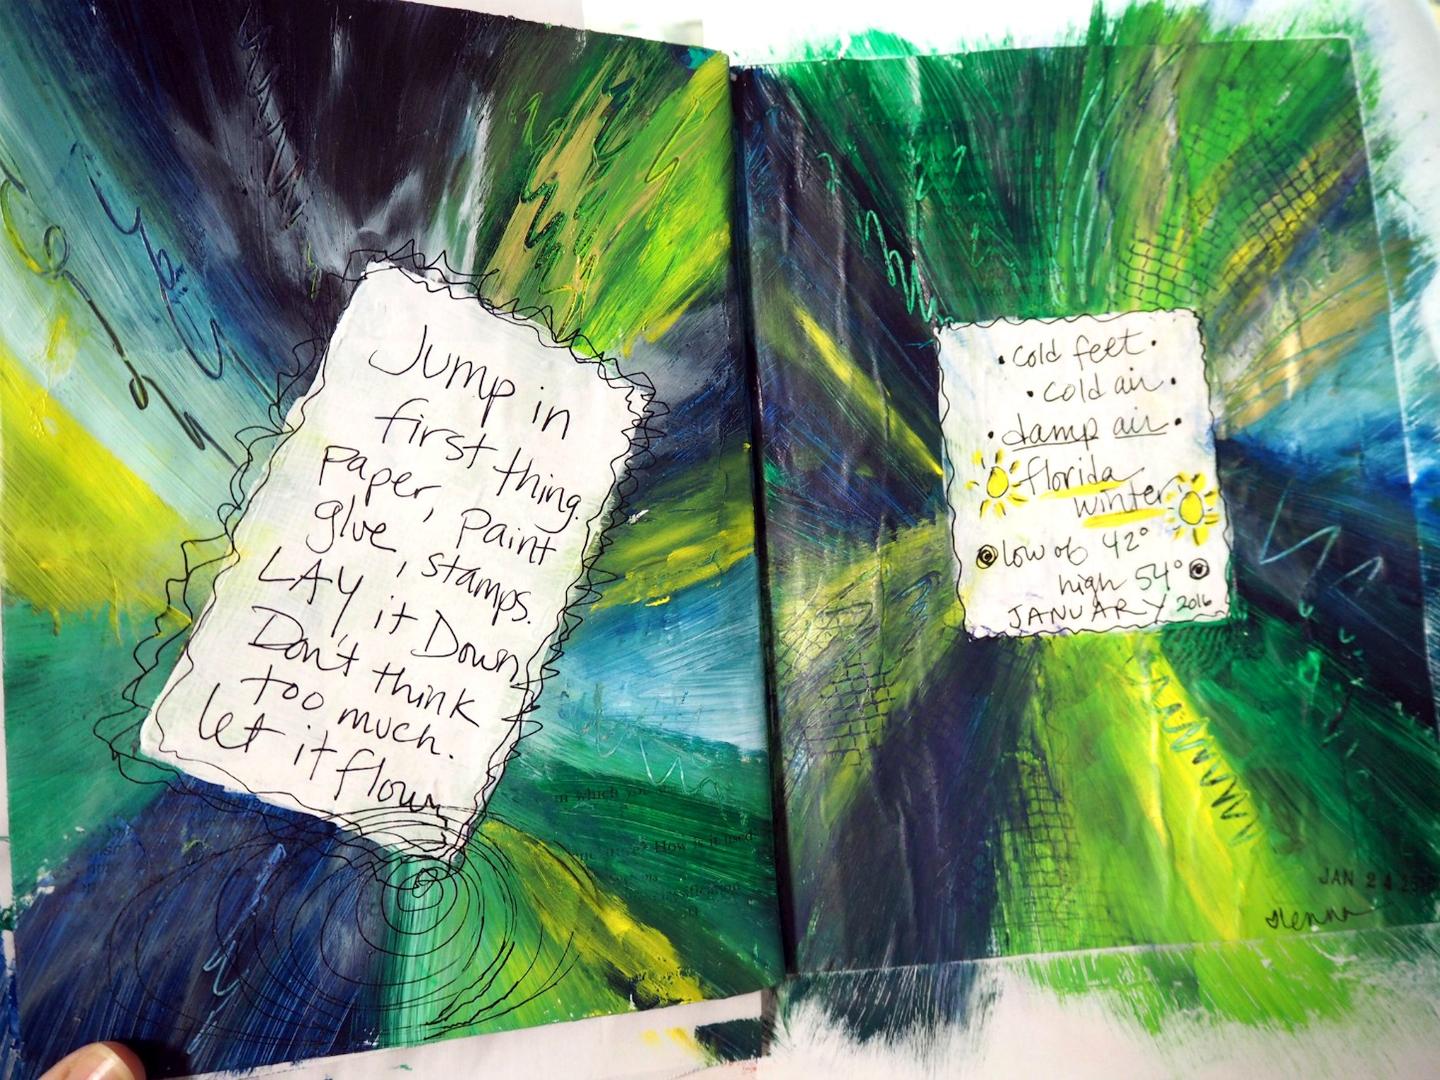 Jump in
first thing.
paper, paint
glue, stamps.
LAY it Down
Don't think
too much.
let it flow
in which you
How is it used
• cold feet •
• cold air •
• damp air •
florida
winter
low of 42°
high 54°
JANUARY 2016
JAN 24